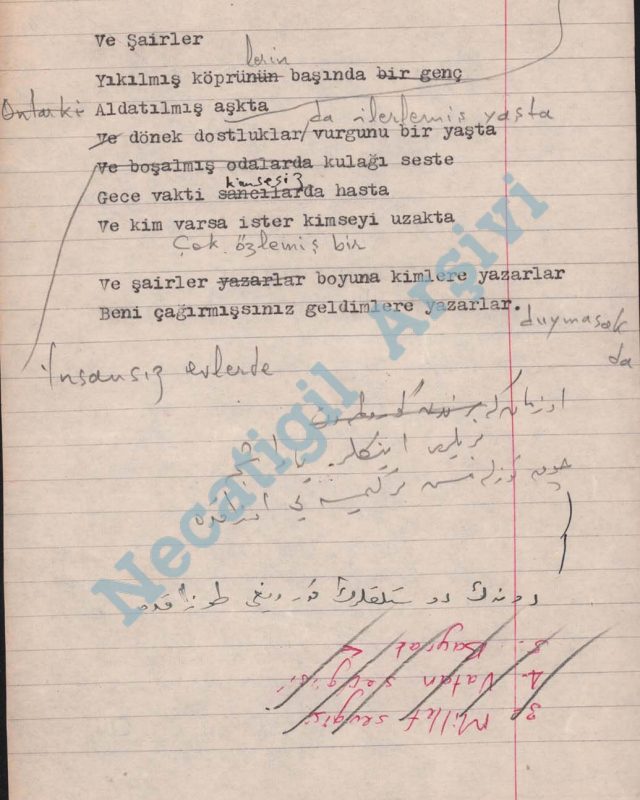 Ve Şairler
lerin
Yıkılmış köprünün başında bir genç
Onlar ki Aldatılmış aşkta da ilerlemiş yaşta
Ve dönek dostluklar/vurgunu bir yaşta
Ve boşalmış odalarda kulağı seste
kimsesiz
Gece vakti sancılarda hasta
Ve kim varsa ister kimseyi uzakta
Çok özlemiş bir
Ve şairler yazarlar boyuna kimlere yazarlar
Beni çağırmışsınız geldimlere yazarlar.
duymasak
da
İnsansız evlerde
چوق اوزله مش بر كیمسه یی اوزاقده
دونەك دوستلقلرك
3. Bayrak
4. Vatan sevgisi
Millet sevgisi
Necatigil Arşivi